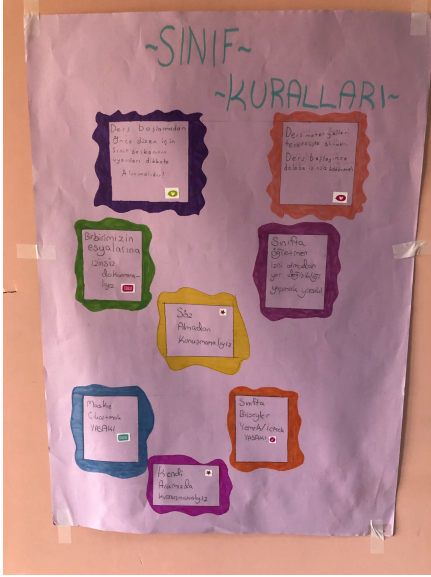 ~SINIF~
~KURALLARI~
Ders başlamadan
Önce düzen için
Sınıf başkanının
uyarıları dikkate
Alınmalıdır!
Ders başlayınca
Birbirimizin
eşyalarına
izinsiz
dokunmama-
lıyız
Sınıfta
öğretmen
izni olmadan
yer değişikliği
yapmak yasak!
Söz
Almadan
Konuşmamalıyız
Maske
Çıkartmak
YASAK!
Sınıfta
Birşeyler
Yemek/içmek
YASAK!
Kendi
Aramızda
Konuşmamalıyız